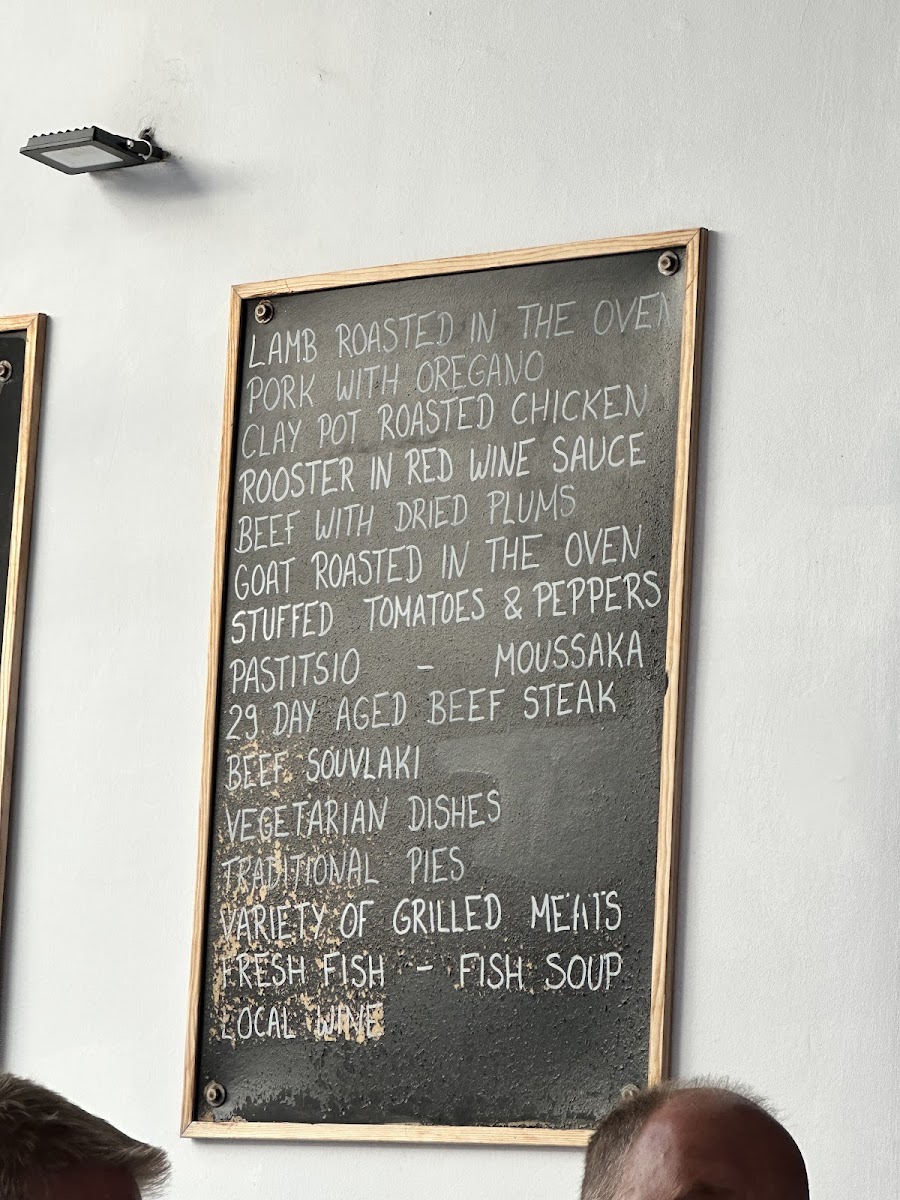 LAMB ROASTED IN THE OVEN
PORK WITH OREGANO
CLAY POT ROASTED CHICKEN
ROOSTER IN RED WINE SAUCE
BEEF WITH DRIED PLUMS
GOAT ROASTED IN THE OVEN
STUFFED TOMATOES & PEPPERS
PASTITSIO - MOUSSAKA
29 DAY AGED BEEF STEAK
BEEF SOUVLAKI
VEGETARIAN DISHES
TRADITIONAL PIES
VARIETY OF GRILLED MEATS
FRESH FISH - FISH SOUP
LOCAL WINE